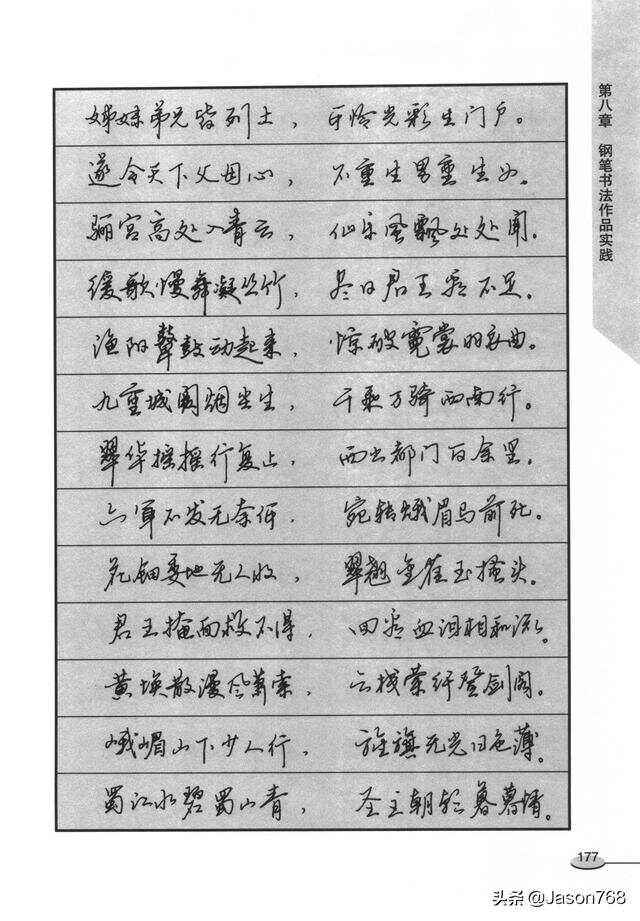 第八章 钢笔书法作品实践
姊妹弟兄皆列土，可怜光彩生门户。
遂令天下父母心，不重生男重生女。
骊宫高处入青云，仙乐风飘处处闻。
缓歌慢舞凝丝竹，尽日君王看不足。
渔阳鼙鼓动起来，惊破霓裳羽衣曲。
九重城阙烟尘生，千乘万骑西南行。
翠华摇摇行复止，西出都门百余里。
六军不发无奈何，宛转蛾眉马前死。
花钿委地无人收，翠翘金雀玉搔头。
君王掩面救不得，回看血泪相和流。
黄埃散漫风萧索，云栈萦纡登剑阁。
峨嵋山下少人行，旌旗无光日色薄。
蜀江水碧蜀山青，圣主朝朝暮暮情。
177
头条 @Jason768